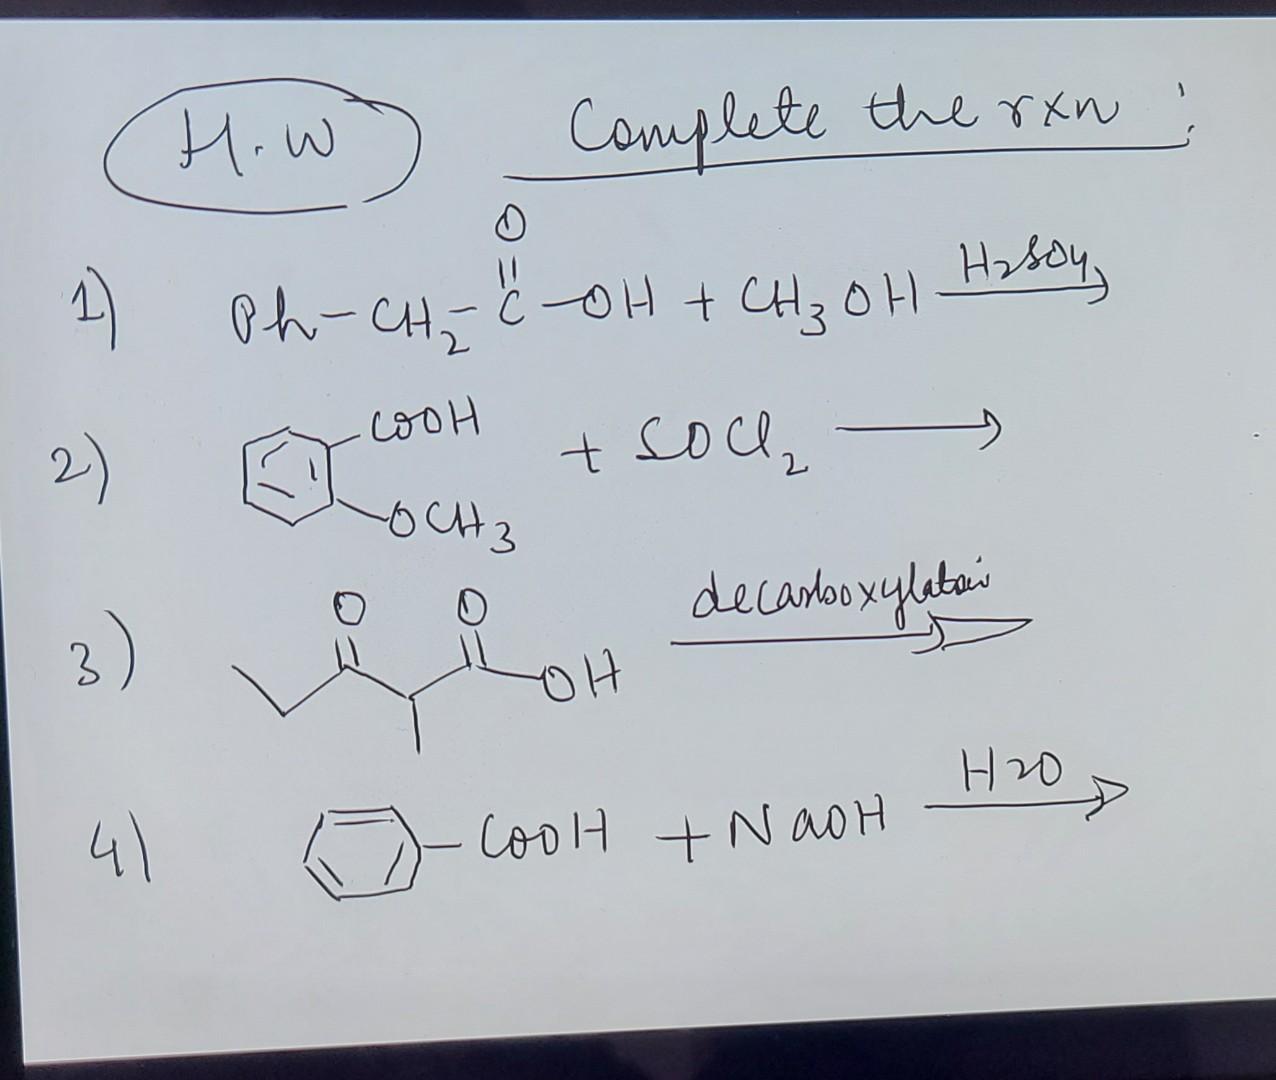 H.W
Complete the rxn :
1) Ph-CH2-C-OH + CH3OH H2SO4
O
2) COOH + SOCl2
OCH3
3) O O OH decarboxylation
4) -COOH + NaOH H2O